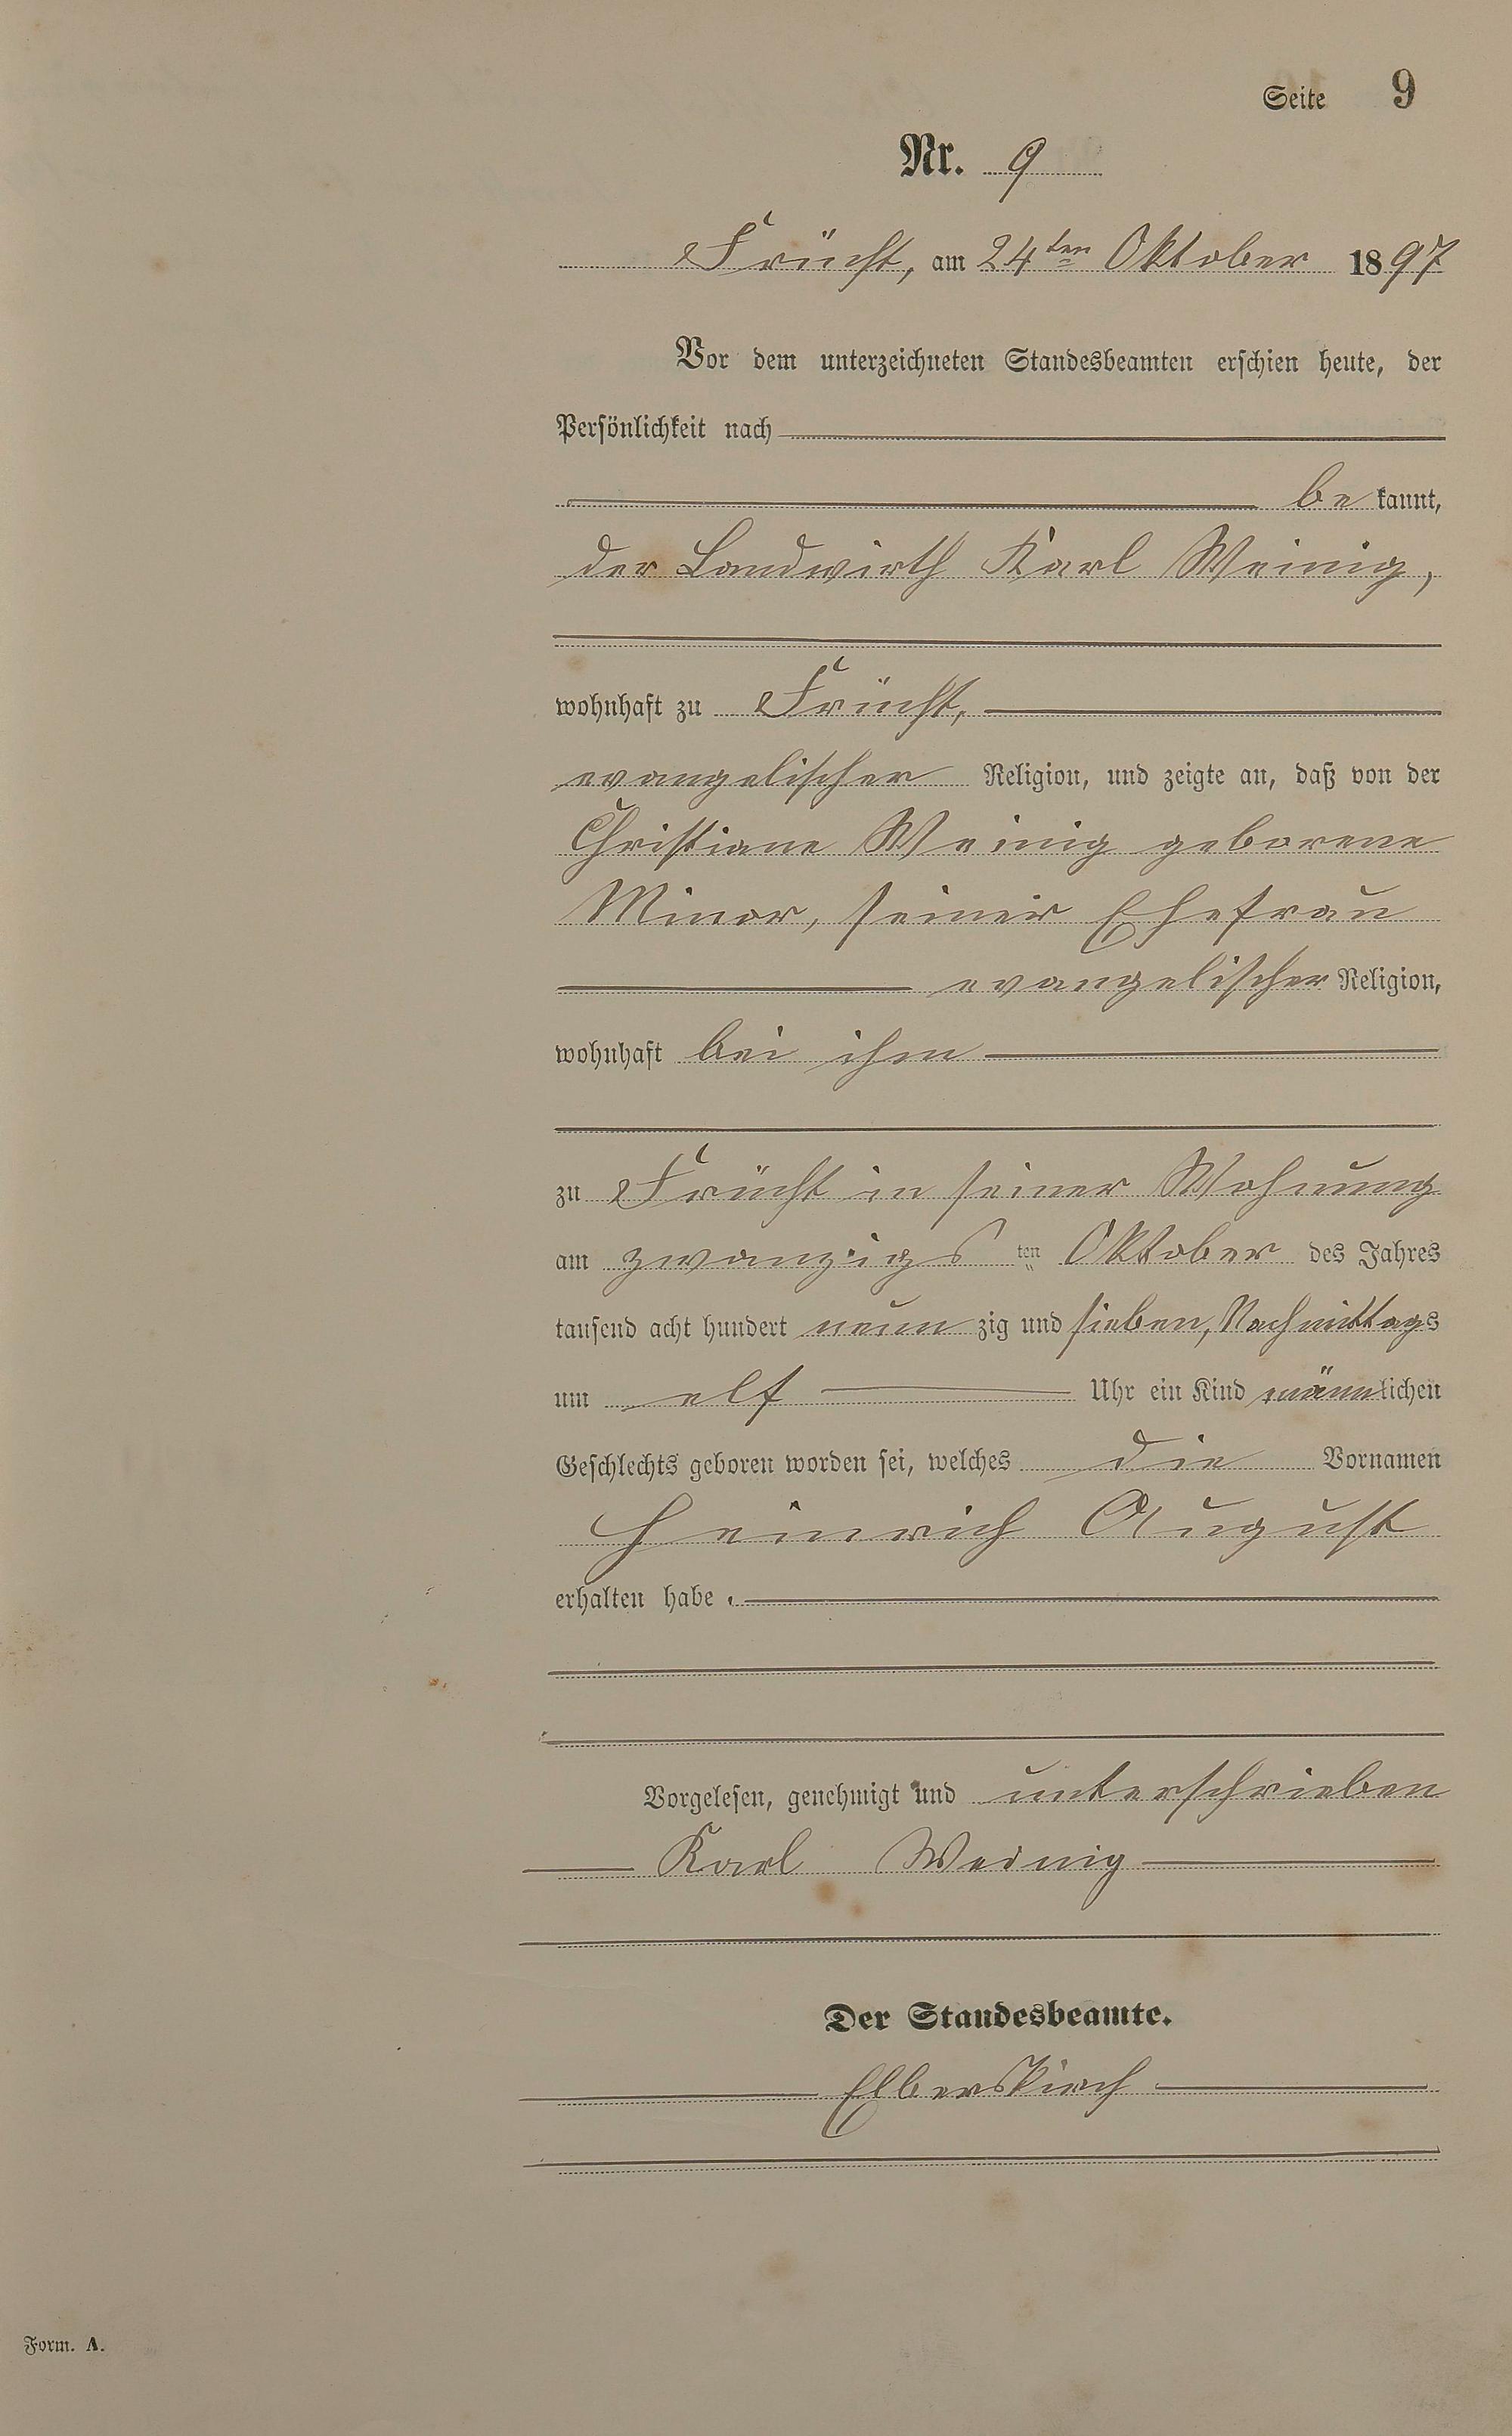 Seite 9
Nr. 9
Frücht, am 24ten Oktober 1897
Vor dem unterzeichneten Standesbeamten erschien heute, der
Persönlichkeit nach
bekannt,
der Landwirth Karl Weinig,
wohnhaft zu Frücht,
evangelischer Religion, und zeigte an, daß von der
Christiane Weinig geborene
Minor, seiner Ehefrau
evangelischer Religion,
wohnhaft bei ihm
zu Frücht in seiner Wohnung
am zwanzigsten Oktober des Jahres
tausend acht hundert neunzig und sieben, Nachmittags
um elf Uhr ein Kind männlichen
Geschlechts geboren worden sei, welches die Vornamen
Heinrich August
erhalten habe.
Vorgelesen, genehmigt und unterschrieben
Karl Weinig
Der Standesbeamte.
Elberskirch
Form. A.